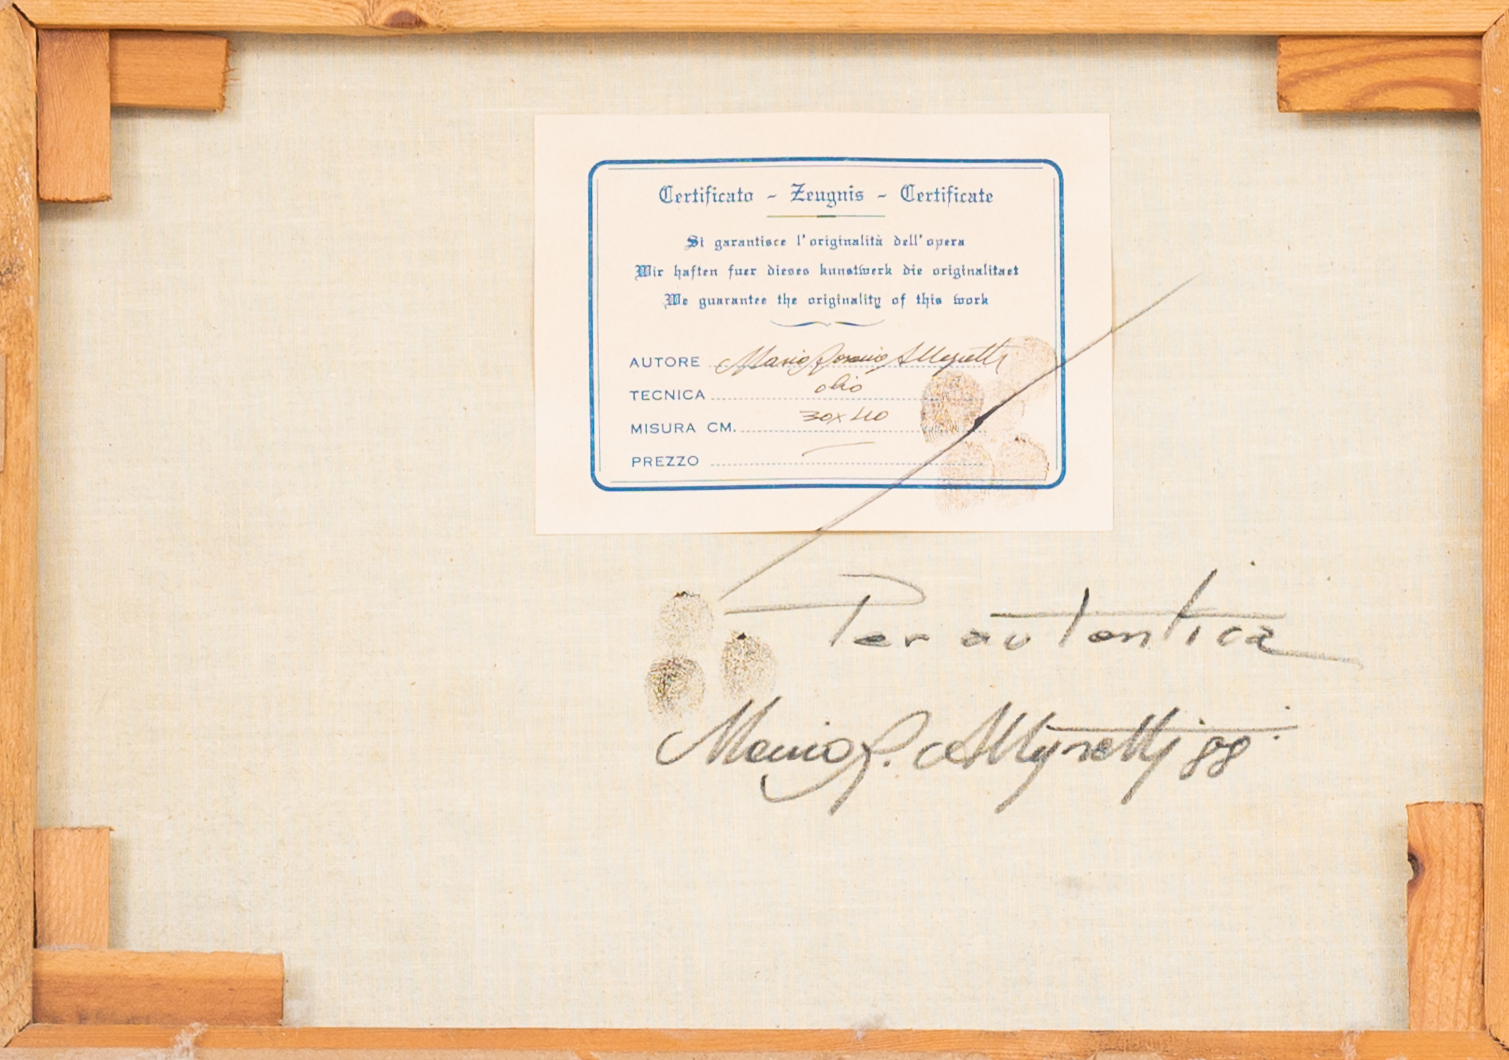 Certificato - Zeugnis - Certificate
Si garantisce l'originalità dell'opera
Wir haften fuer dieses kunstwerk die originalitaet
We guarantee the originality of this work
AUTORE Mario Rosario Allegretti
TECNICA olio
MISURA CM. 30x40
PREZZO
Per autentica
Mario R. Allegretti 88